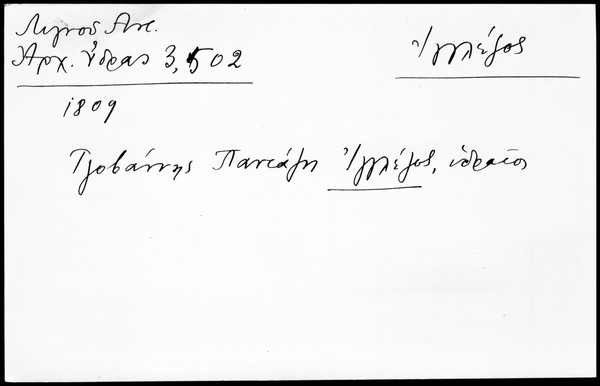 Λιγνού Αντ.
Αρχ. Ύδρας 3, 502
Ἰγγλέζος
1809
Τζοβάννης Παντάζη Ἰγγλέζος, ὑδραῖος